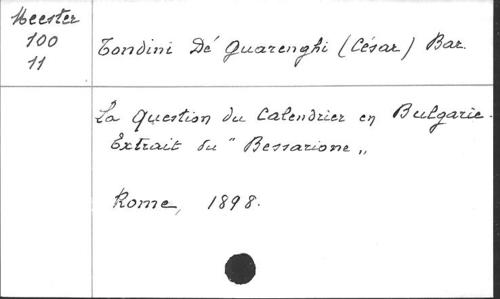 Meester
100
11
Tondini Dé Quarenghi (César) Bar.
La Question du Calendrier en Bulgarie.
Extrait du " Bessarione „
Rome, 1898.